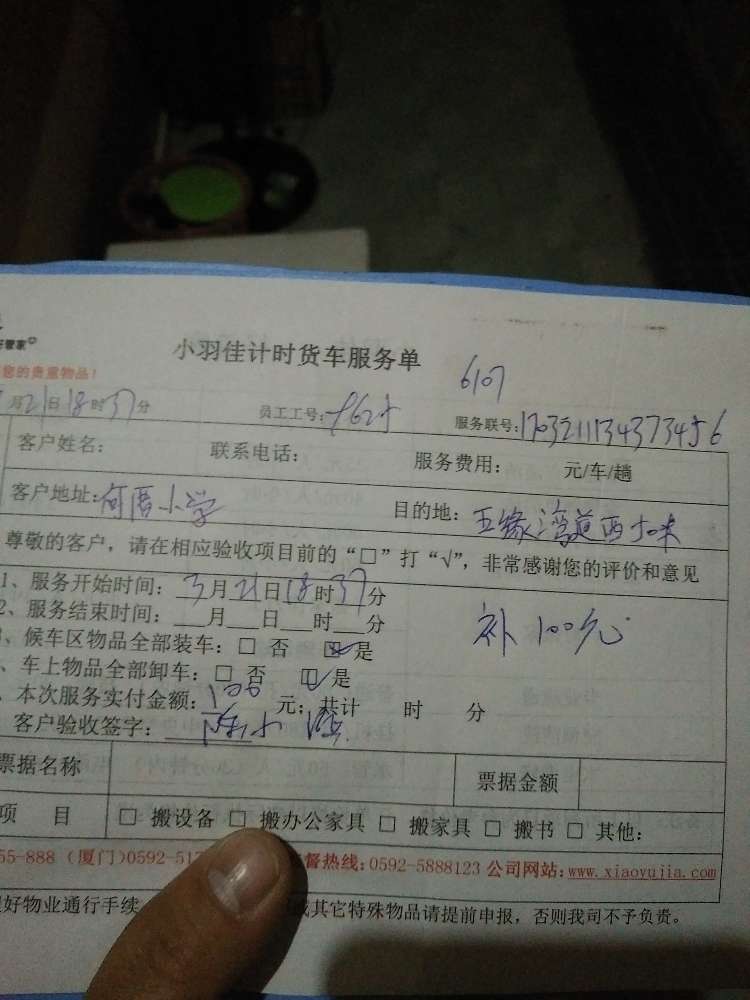 好管家
小羽佳计时货车服务单
您的贵重物品!
6107
月21日18时37分 员工工号: 服务联号:
客户姓名: 联系电话: 服务费用: 元/车/趟
客户地址:何厝小学 目的地:五缘湾道西
尊敬的客户,请在相应验收项目前的“□”打“√”,非常感谢您的评价和意见
1、服务开始时间:3月21日18时37分
2、服务结束时间:___月___日___时___分
、候车区物品全部装车:□ 否 ☑是
补100元
、车上物品全部卸车:□ 否 ☑是
、本次服务实付金额:100元;共计 时 分
客户验收签字:
票据名称 票据金额
项 目 □ 搬设备 □ 搬办公家具 □ 搬家具 □ 搬书 □ 其他:
55-888(厦门)0592-51 督热线:0592-5888123 公司网站:www.xiaoyujia.com
好物业通行手续 或其它特殊物品请提前申报,否则我司不予负责。